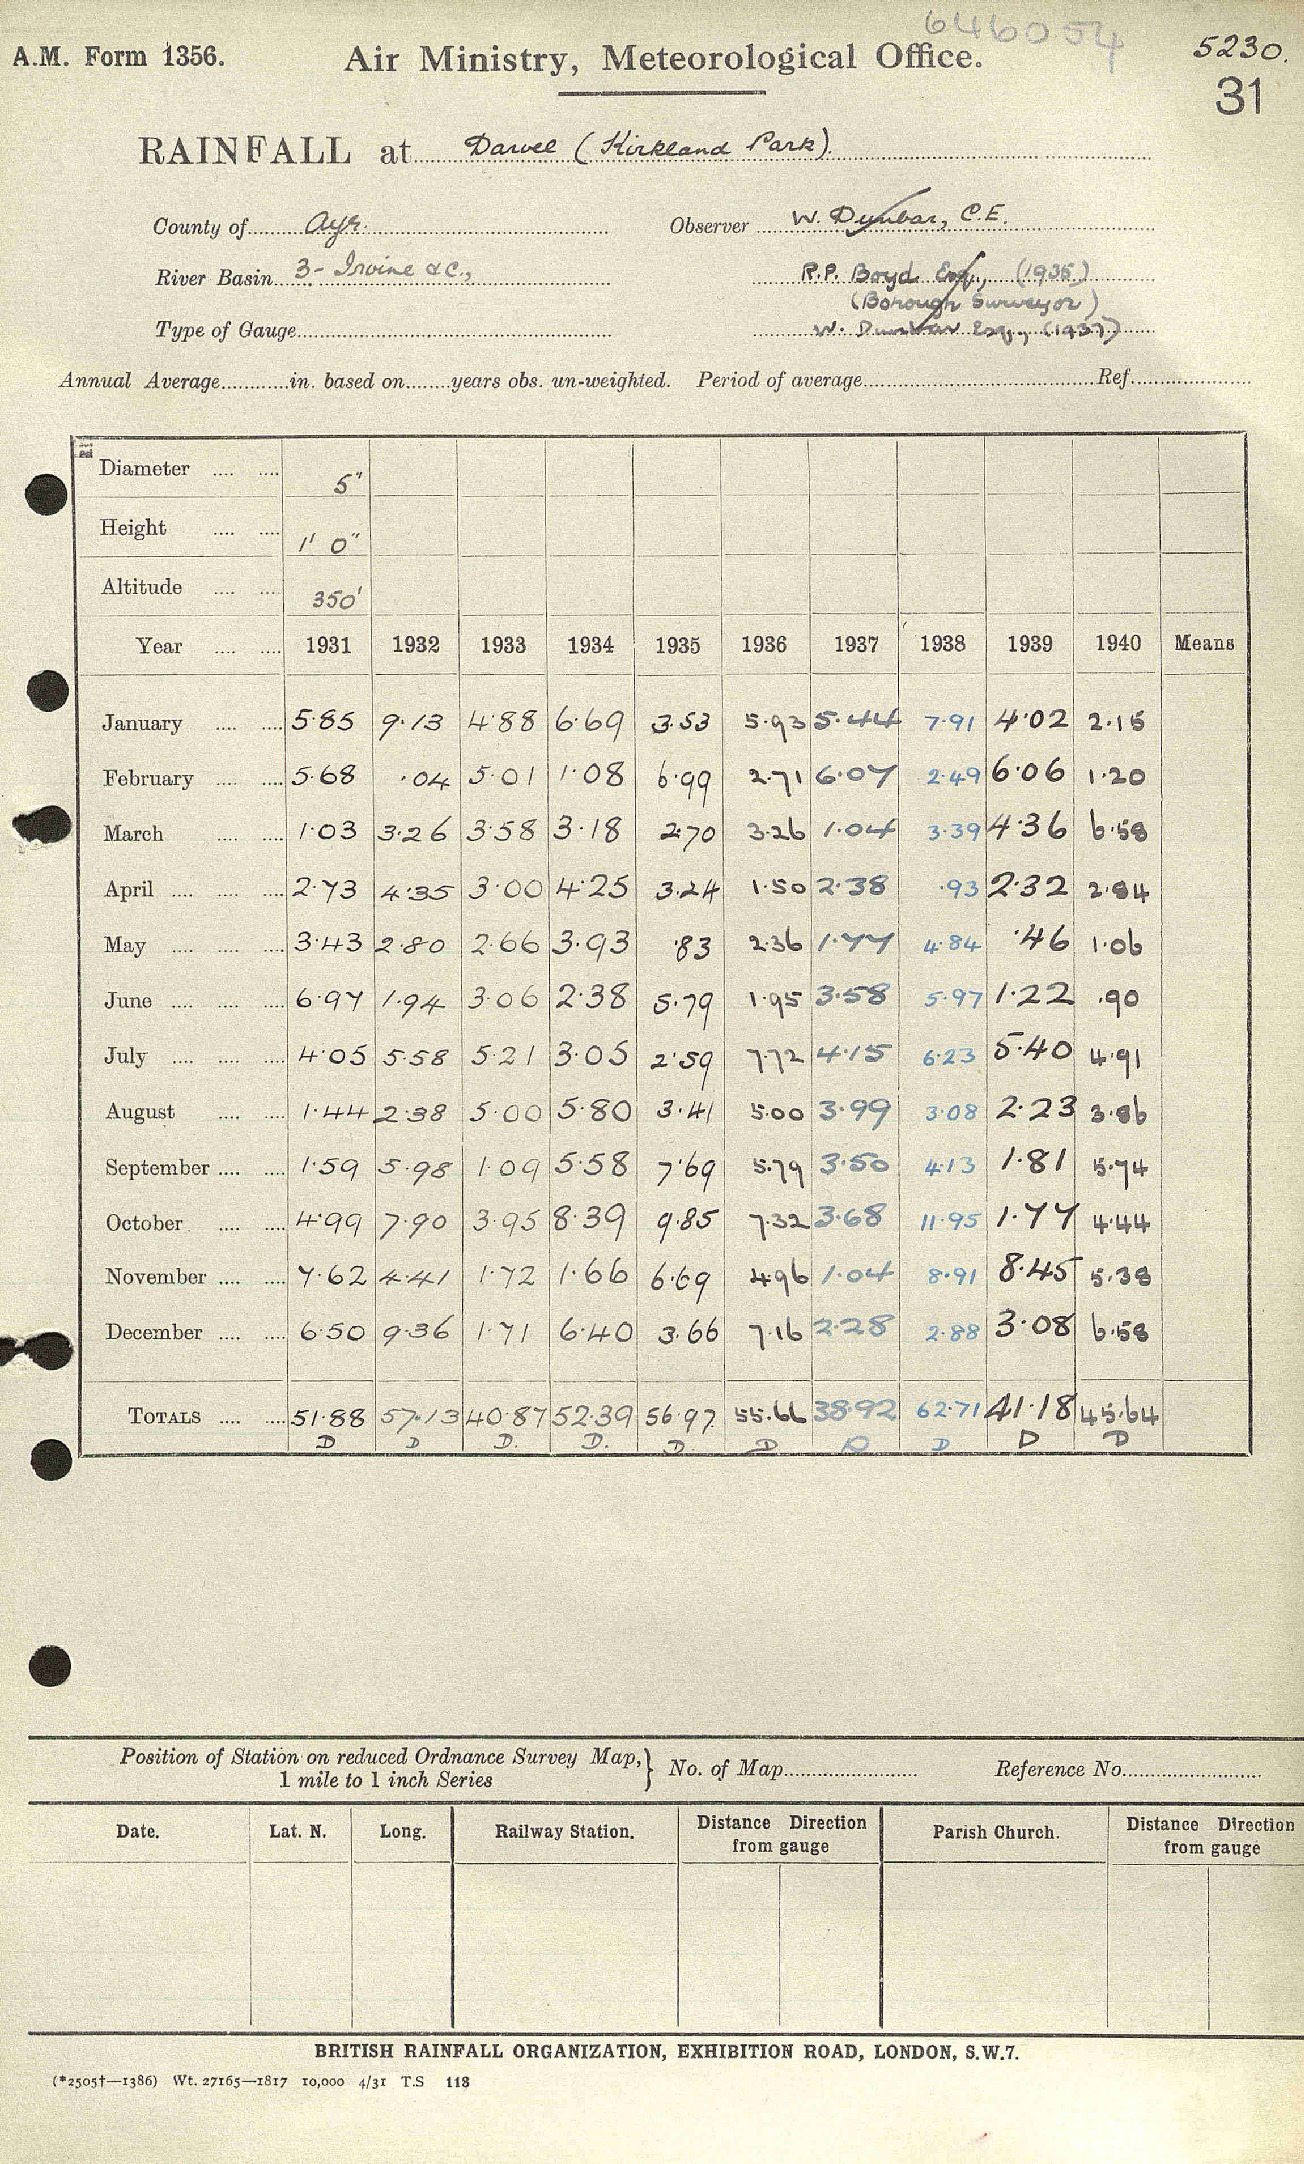 646054
A.M. Form 1356. Air Ministry, Meteorological Office. 5230.
31
RAINFALL at Darvel (Kirkland Park)
County of Ayr. Observer W. Dunbar, C.E.
River Basin 3- Irvine &c., R.P. Boyd Esq., (1935)
(Borough Surveyor)
Type of Gauge W. Dunbar Esq., (1937)
Annual Average in. based on years obs. un-weighted. Period of average Ref.
Diameter 5"
Height 1' 0"
Altitude 350'
Year 1931 1932 1933 1934 1935 1936 1937 1938 1939 1940 Means
January 5.85 9.13 4.88 6.69 3.53 5.93 5.44 7.91 4.02 2.15
February 5.68 .04 5.01 1.08 6.99 2.71 6.07 2.49 6.06 1.20
March 1.03 3.26 3.58 3.18 2.70 3.26 1.04 3.39 4.36 6.58
April 2.73 4.35 3.00 4.25 3.24 1.50 2.38 .93 2.32 2.84
May 3.43 2.80 2.66 3.93 .83 2.36 1.77 4.84 .46 1.06
June 6.97 1.94 3.06 2.38 5.79 1.95 3.58 5.97 1.22 .90
July 4.05 5.58 5.21 3.05 2.59 7.72 4.15 6.23 5.40 4.91
August 1.44 2.38 5.00 5.80 3.41 5.00 3.99 3.08 2.23 3.86
September 1.59 5.98 1.09 5.58 7.69 5.79 3.50 4.13 1.81 5.74
October 4.99 7.90 3.95 8.39 9.85 7.32 3.68 11.95 1.77 4.44
November 7.62 4.41 1.72 1.66 6.69 4.96 1.04 8.91 8.45 5.38
December 6.50 9.36 1.71 6.40 3.66 7.16 2.28 2.88 3.08 6.58
TOTALS 51.88 57.13 40.87 52.39 56.97 55.66 38.92 62.71 41.18 45.64
D D D. D. D D D D D D
Position of Station on reduced Ordnance Survey Map, } No. of Map Reference No.
1 mile to 1 inch Series
Date. Lat. N. Long. Railway Station. Distance Direction from gauge Parish Church. Distance Direction from gauge
BRITISH RAINFALL ORGANIZATION, EXHIBITION ROAD, LONDON, S.W.7.
(*2505†—1386) Wt. 27165—1817 10,000 4/31 T.S 113